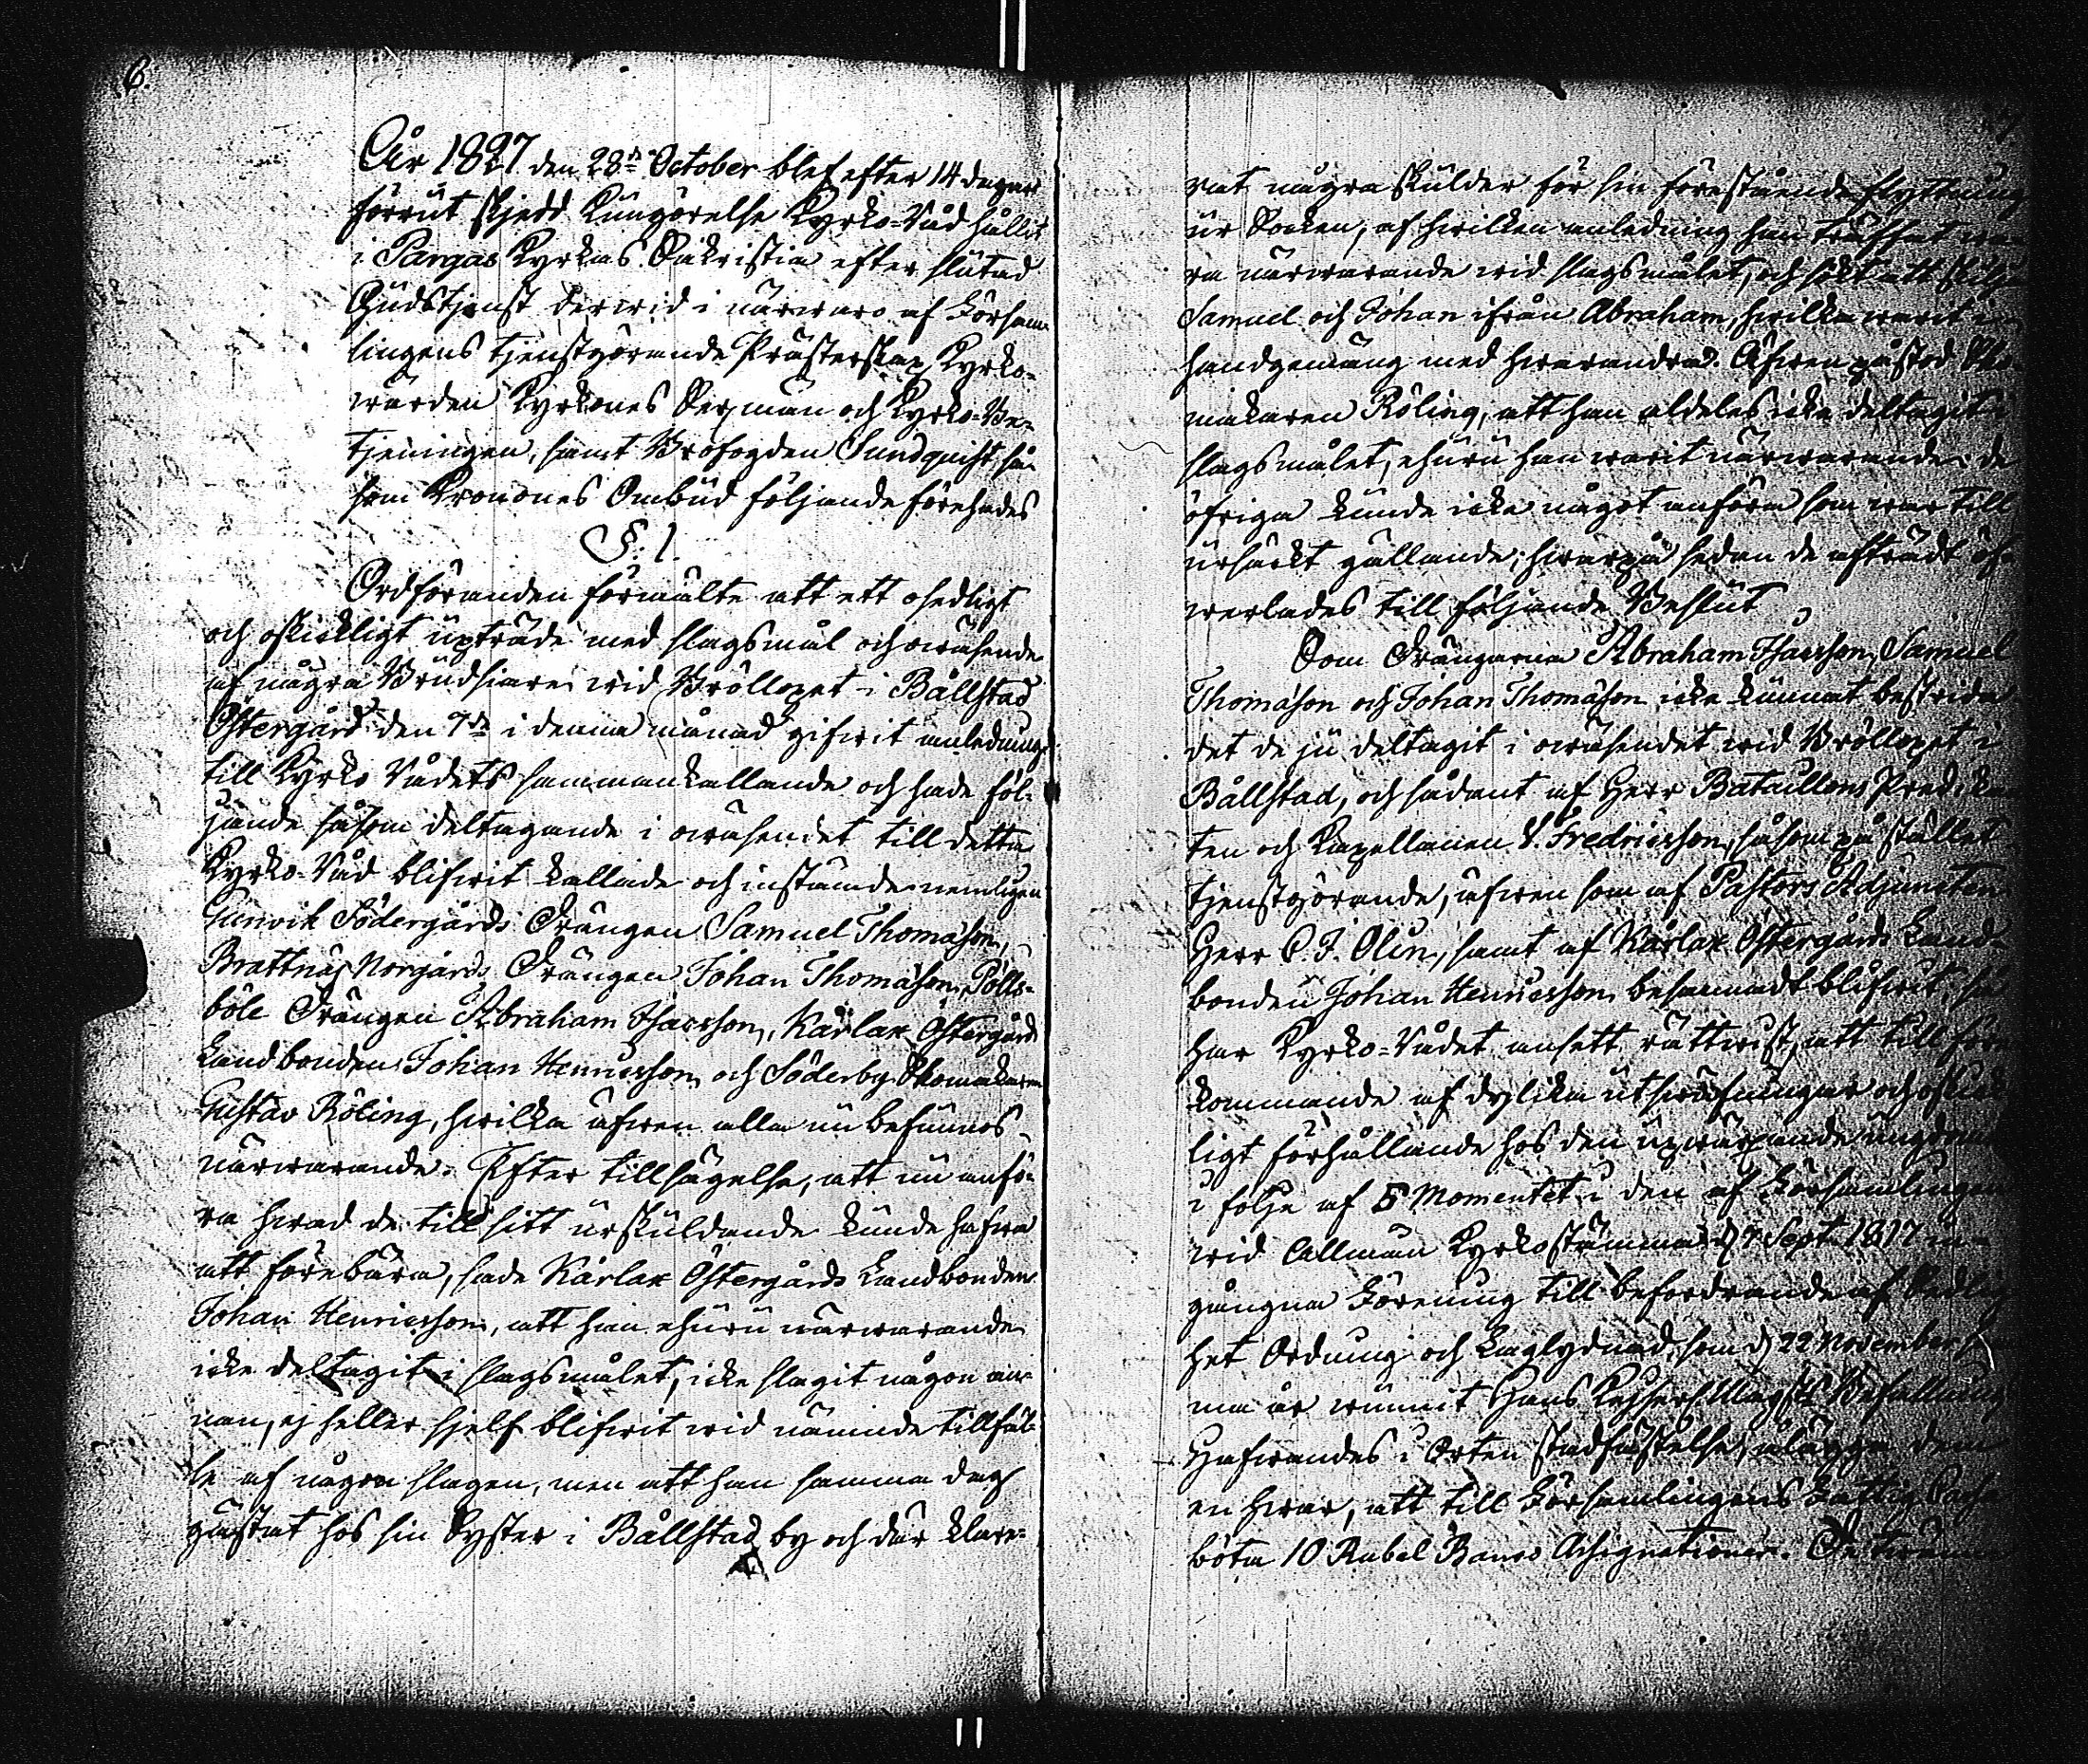 6.
År 1827 den 28de October blef efter 14 dagar
förrut skjedd Kungörelse Kyrko-Råd hållit
i Pargas Kyrkas Sakristia efter slutad
Gudstjenst derwid i närwaro af Försam-
lingens tjenstgörande Prästerskap, Kyrko-
wärden Kyrkones Sexmän och Kyrko-Be-
tjeningen, samt Brofogden Sundquist så-
som Kronones Ombud följande förehades
§. 1.
Ordföranden förmälte att ett osedligt
och oskickligt uppträde med slagsmål och owäsende
af några Brudskarer wid Bröllopet i Bållstad
Östergård den 7de i denna månad gifwit anledning
till Kyrko Rådets sammankallande och hade föl-
jande såsom deltagande i owäsendet till detta
Kyrko-Råd blifwit kallade och instämde nemligen
Gunvik Södergårds Drängen Samuel Thomasson,
Brattnäs Norgårds Drängen Johan Thomasson, Pölls-
böle Drängen Abraham Isacsson, Kårlax Östergårds
Landbonden Johan Henricsson och Söderby Skomakaren
Gustav Röling, hwilka äfwen alla nu befunnos
närwarande. Efter tillsägelse, att nu anfö-
ra hwad de till sitt urskuldande kunde hafwa
att förebära, sade Kårlax Östergårds Landbonden
Johan Henricsson, att han ehuru närwarande
icke deltagit i slagsmålet, icke slagit någon an-
nan, ej heller sjelf blifwit wid nämnde tillfäl-
le af någon slagen, men att han samma dag
gästat hos sin Syster i Bållstad by och där klare-
rat några skulder för sin förestående flyttning
ur Socken, af hwilken anledning han träffat wa-
ra närwarande wid slagsmålet, och sökt att skilja
Samuel och Johan ifrån Abraham, hwilka warit i
handgemäng med hwarandra. Äfwen påstod Sko-
makaren Röling, att han aldeles icke deltagit i
slagsmålet, ehuru han warit närwarande: de
öfriga kunde icke något anföra som war till
ursäckt gällande; hwarpå sedan de afträdt öf-
werlades till följande Beslut
Som Drängarna Abraham Isacsson, Samuel
Thomasson och Johan Thomasson icke kunnat bestrida
det de ju deltagit i owäsendet wid Bröllopet i
Bållstad, och sådant af Herr Bataillons Predika-
ten och Kapellanen V. Fredricsson, såsom på stället
tjenstgörande, äfwen som af Pastors Adjuncten
Herr C. J. Olin, samt af Kårlax Östergårds Land-
bonden Johan Henricsson besannadt blifwit; så
har Kyrko-Rådet ansett rättwist, att till före-
kommande af dylika utswäfningar och oskick-
ligt förhållande hos den uppwäxande ungdomen
i följe af 5 Momentet i den af Församlingen
wid Allmän Kyrkostämma d 7 Sept. 1817 in-
gångna Förening till befordrande af Sedlig-
het Ordning och Laglydnad, som d 22 November sam-
ma år wunnit Hans Kejserl. Maj:ts Befallnings
Hafwandes i Orten stadfästelse, ålägga dem
en hwar, att till Församlingens Fattig Cassa
böta 10 Rubel Banco Assignationer.